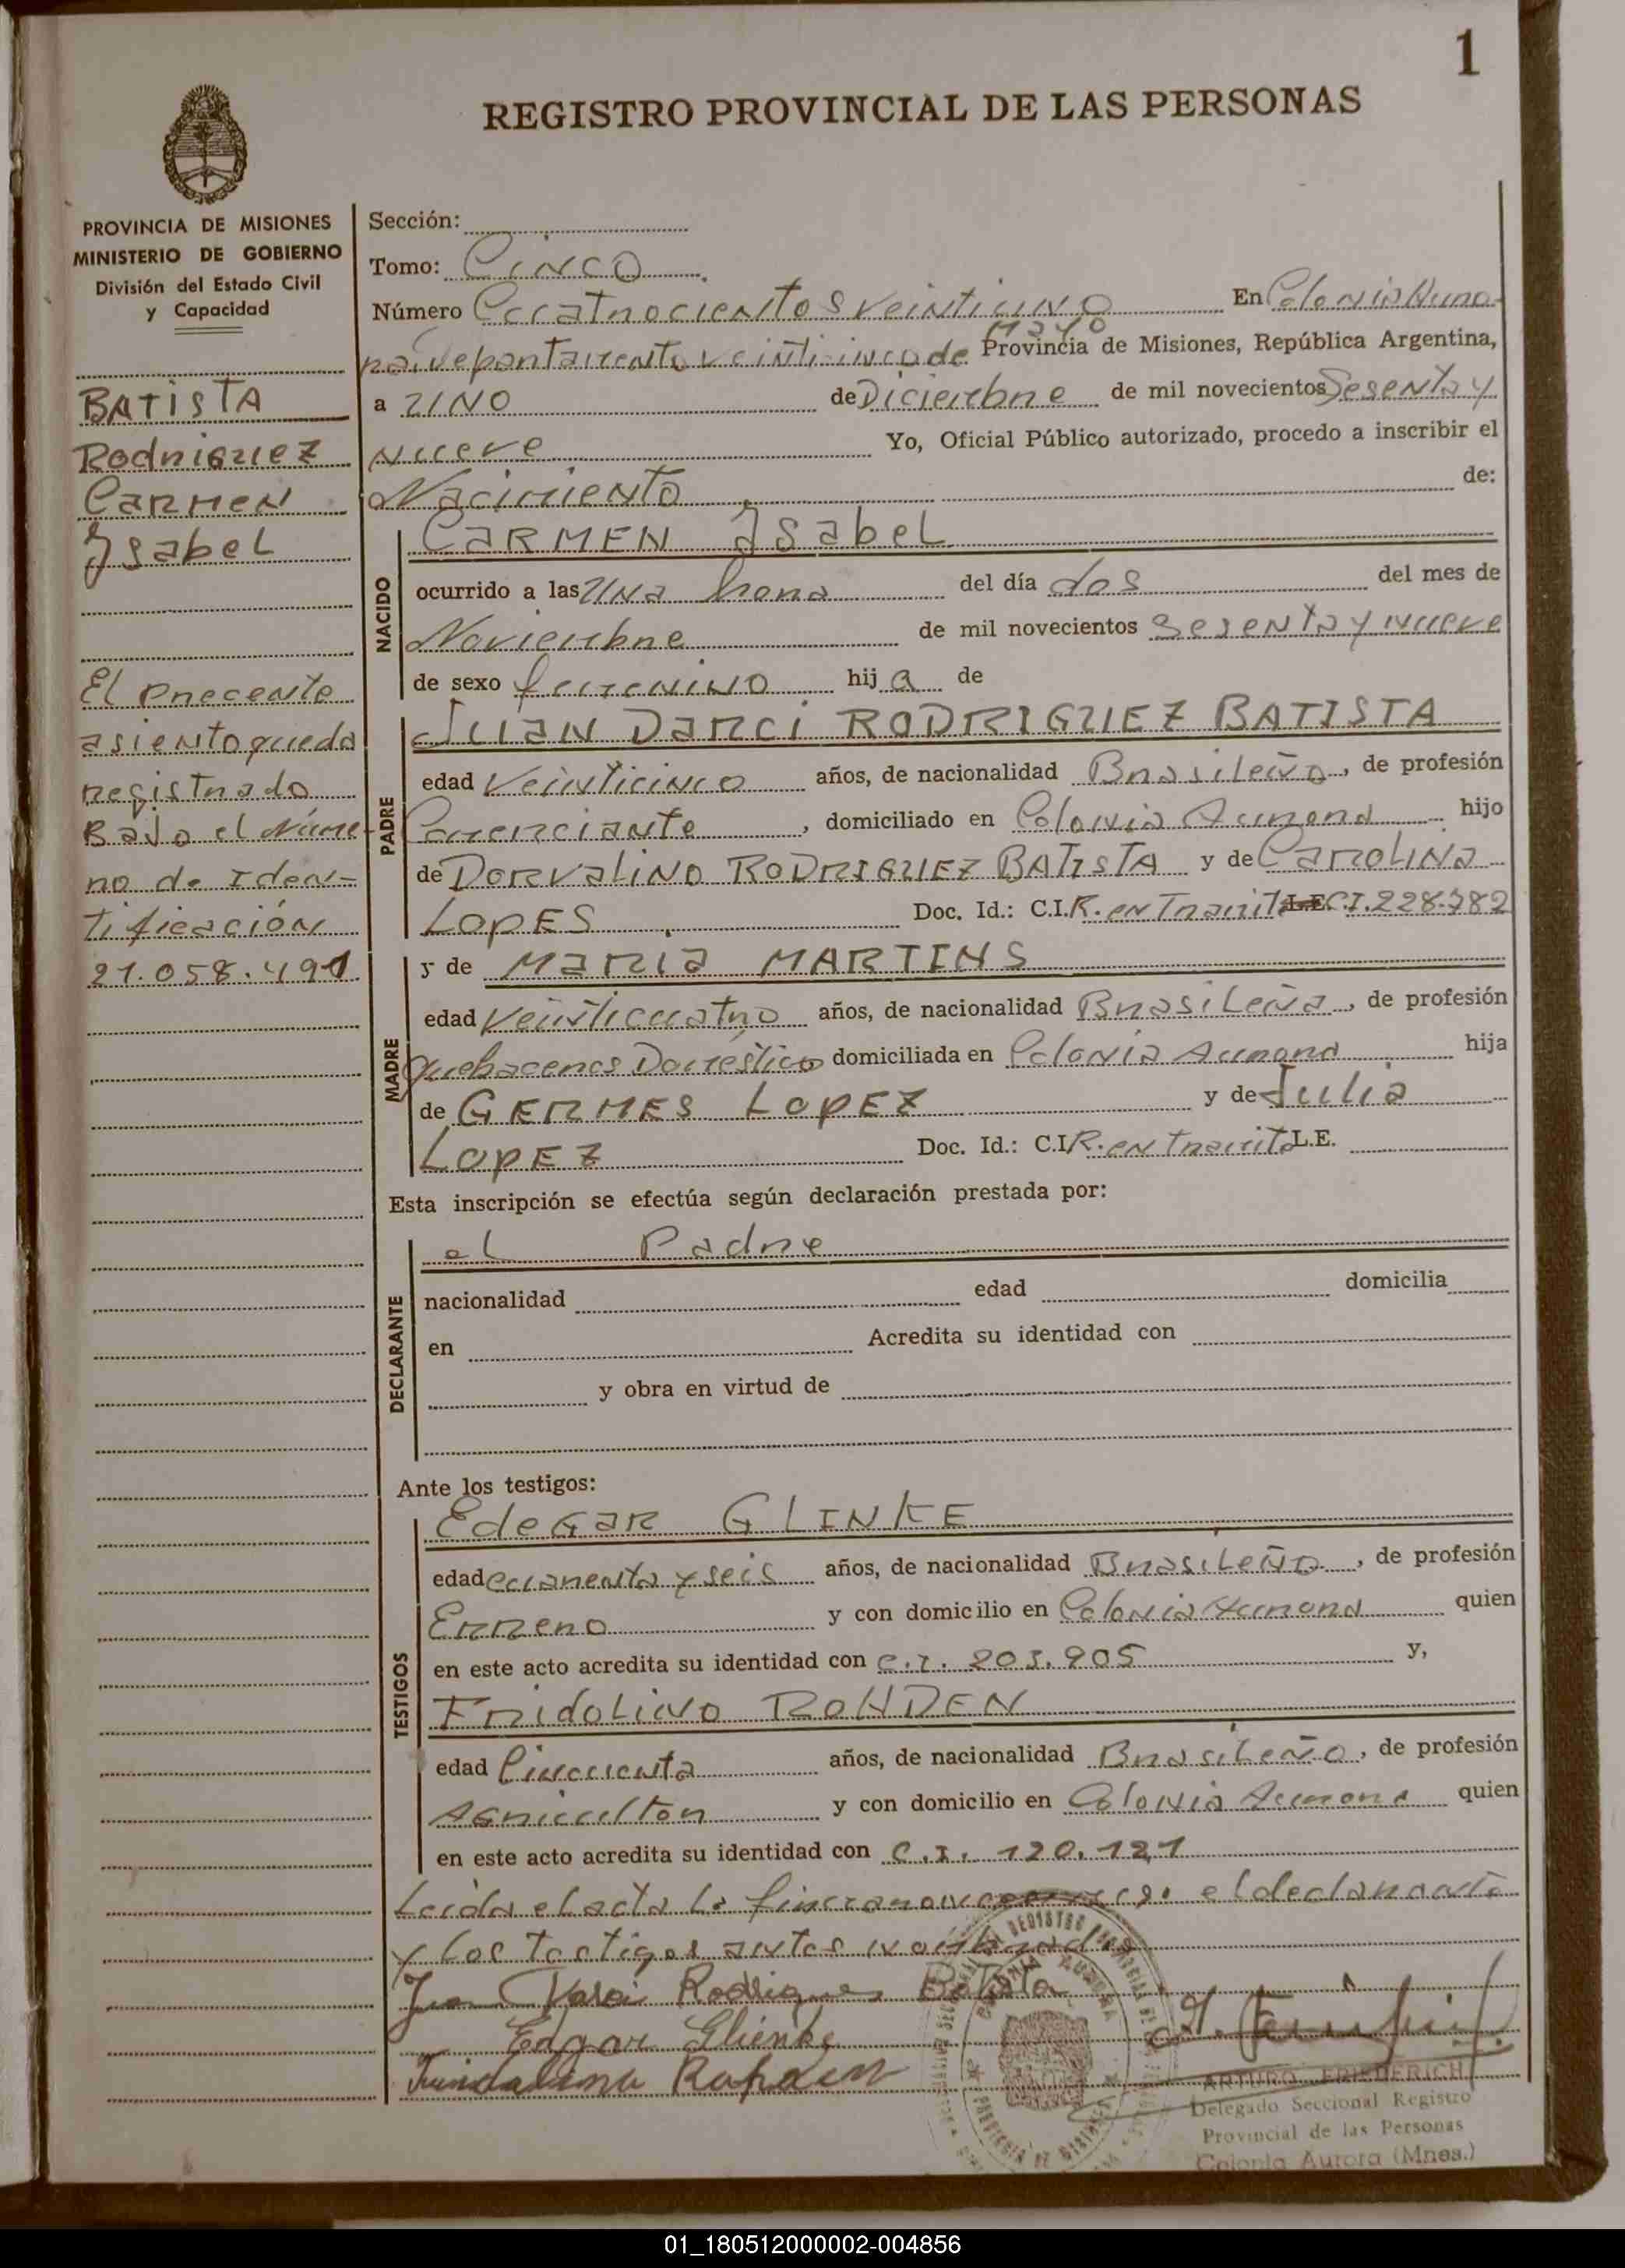 1
REGISTRO PROVINCIAL DE LAS PERSONAS
PROVINCIA DE MISIONES
MINISTERIO DE GOBIERNO
División del Estado Civil
y Capacidad
BATISTA
Rodriguez
Carmen
Isabel
El precente
asiento queda
registrado
Bajo el Núme-
ro de Iden-
tificación
21.058.491
Sección:
Tomo: Cinco
Número Cuatrocientos veintiuno En Colonia Auro-
ra, Departamento veinticinco de Mayo Provincia de Misiones, República Argentina,
a UNO de Diciembre de mil novecientos Sesenta y
nueve Yo, Oficial Público autorizado, procedo a inscribir el
Nacimiento de:
NACIDO
CARMEN Isabel
ocurrido a las Una hora del día dos del mes de
Noviembre de mil novecientos Sesenta y nueve
de sexo femenino hija de
PADRE
Juan Darci RODRIGUEZ BATISTA
edad Veinticinco años, de nacionalidad Brasileño, de profesión
Comerciante, domiciliado en Colonia Aurora hijo
de Dorvalino RODRIGUEZ BATISTA y de Carolina
Lopes Doc. Id.: C.I. R. en Tramite L.E. C.I. 228.782
MADRE
y de Maria MARTINS
edad Veinticuatro años, de nacionalidad Brasileña, de profesión
quehaceres Doméstico domiciliada en Colonia Aurora hija
de GERMES LOPEZ y de Julia
Lopez Doc. Id.: C.I. R. en Tramite L.E.
Esta inscripción se efectúa según declaración prestada por:
DECLARANTE
el Padre
nacionalidad edad domicilia
en Acredita su identidad con
y obra en virtud de
Ante los testigos:
TESTIGOS
Edegar GLINKE
edad cuarenta y seis años, de nacionalidad Brasileño, de profesión
Errero y con domicilio en Colonia Aurora quien
en este acto acredita su identidad con C.I. 203.905 y,
Fridolino ROHDEN
edad Cincuenta años, de nacionalidad Brasileño, de profesión
Agricultor y con domicilio en Colonia Aurora quien
en este acto acredita su identidad con C.I. 120.121
Leida el acta la firman el declarante
y los testigos antes nombrados
Juan Darci Rodrigues Batista
Edgar Glienke
ARTURO FRIEDERICH
Delegado Seccional Registro
Provincial de las Personas
Colonia Aurora (Mnes.)
01_180512000002-004856